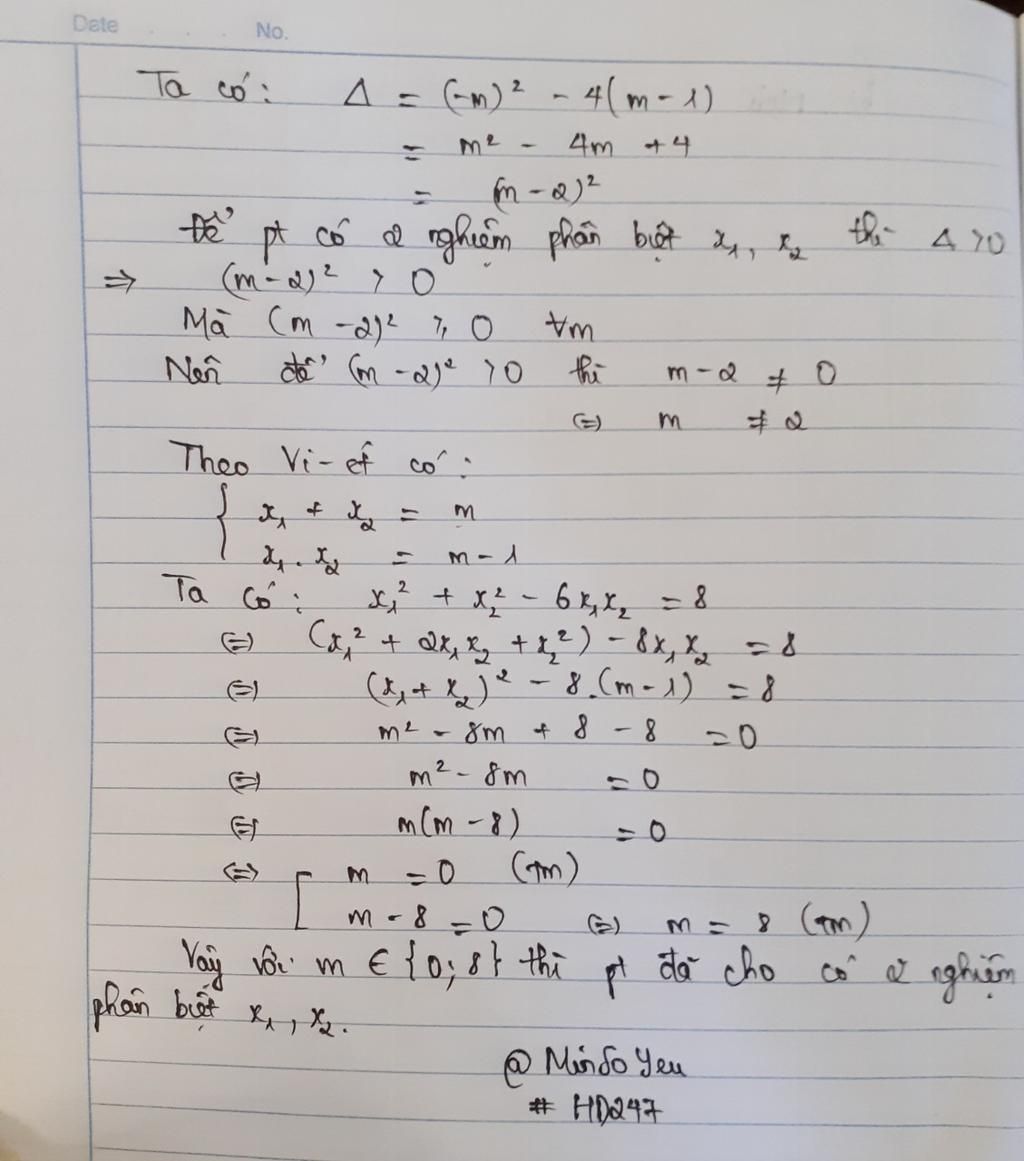 Date No.
Ta có: Δ = (-m)² - 4(m-1)
= m² - 4m + 4
= (m-2)²
Để pt có 2 nghiệm phân biệt x₁, x₂ thì Δ > 0
⇒ (m-2)² > 0
Mà (m-2)² ≥ 0 ∀m
Nên để (m-2)² > 0 thì m-2 ≠ 0
⇔ m ≠ 2
Theo Vi-ét có:
{ x₁ + x₂ = m
x₁.x₂ = m-1
Ta có: x₁² + x₂² - 6x₁x₂ = 8
⇔ (x₁² + 2x₁x₂ + x₂²) - 8x₁x₂ = 8
⇔ (x₁ + x₂)² - 8.(m-1) = 8
⇔ m² - 8m + 8 - 8 = 0
⇔ m² - 8m = 0
⇔ m(m-8) = 0
⇔ [ m = 0 (tm)
m - 8 = 0 ⇔ m = 8 (tm)
Vậy với m ∈ {0; 8} thì pt đã cho có 2 nghiệm
phân biệt x₁, x₂.
@ MinSoYeu
# HD247